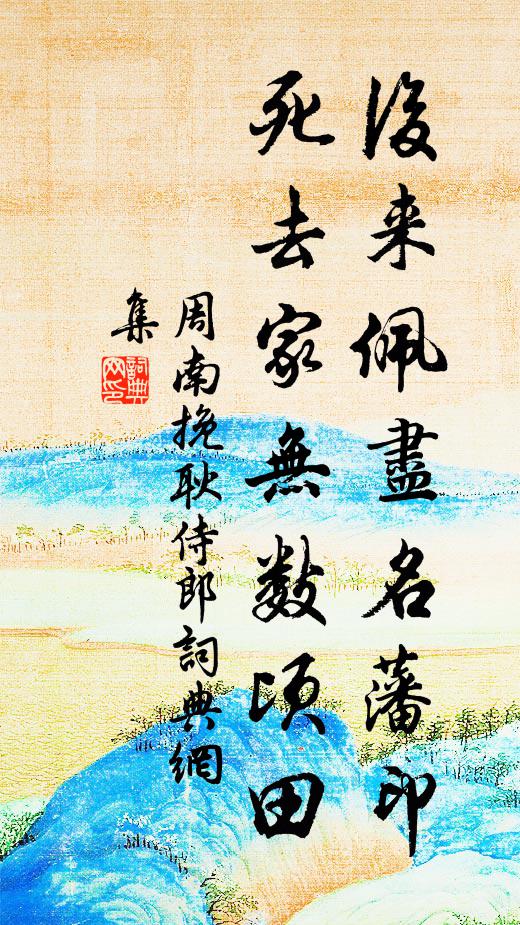 後来佩盡名藩印
死去家無数頃田
周南挽耿侍郎詞典網
集
詞典
网印